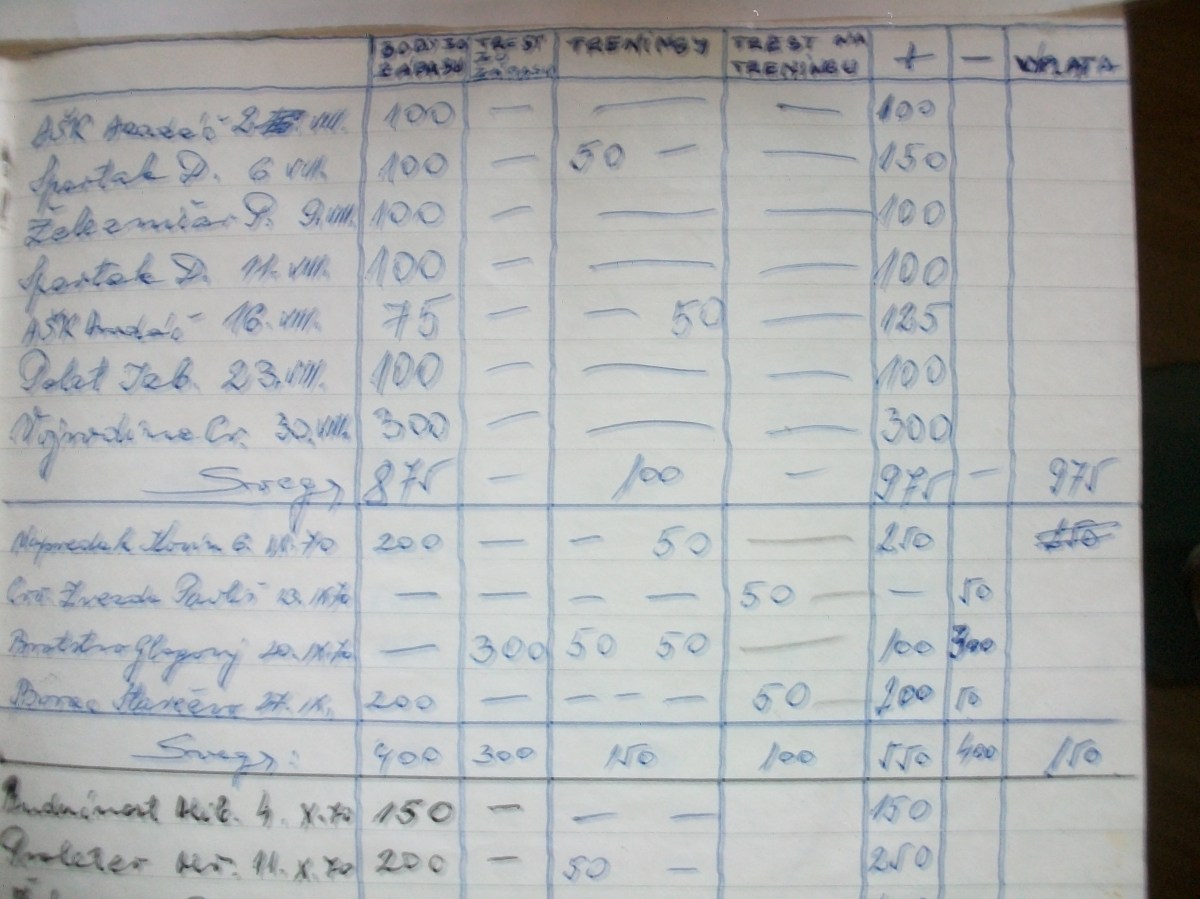 BODY ZO ZÁPASU TREST ZO ZÁPASU TRENINGY TREST NA TRENINGU + — VÝPLATA
AŠK 2. VIII. 100 — — — 100
Spartak D. 6 VIII. 100 — 50 — — 150
P. 9. VIII. 100 — — — 100
Spartak D. 11. VIII. 100 — — — 100
AŠK 16. VIII. 75 — — 50 — 125
Polet 23. VIII. 100 — — — 100
Vojvodina Cr. 30. VIII. 300 — — — 300
Svega 875 — 100 — 975 — 975
Napredak 6. IX. 70 200 — — 50 — 250
Zvezda Pavliš 13. IX. 70 — — — — 50 — — 50
Bratstvo 20. IX. 70 — 300 50 50 — 100 300
Borac Starčevo 27. IX. 200 — — — — 50 — 200 50
Svega: 400 300 150 100 550 400 150
Budućnost 4. X. 70 150 — — — 150
Proleter 11. X. 70 200 — 50 — 250